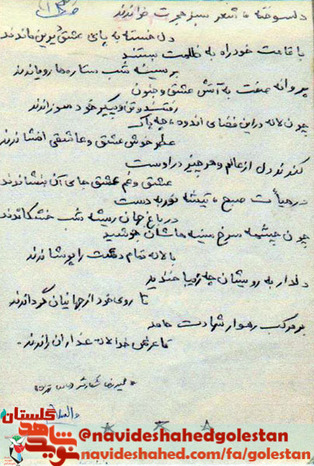 دلسوخته شعر سبز هجرت خواندند
دل خسته به پای عشق
با قامت خود راه به ظلمت بستند
بر سینه شب ستاره‌ها رویاندند
پروانه صفت به آتش عشق و جنون
رفتند و پیکر خود سوزاندند
چون لاله در این فضای اندوه، چه پاک
عطر خوش عشق و عاشقی افشاندند
کندند دل از عالم و هر چیز در اوست
عشق و غم عشق جای آن بنشاندند
در صبح، تیشه نور به دست
در باغ جهان ریشه شب خشکاندند
چون چشمه سرخ سینه هاشان جوشید
با لاله تمام دشت را پوشاندند
دلدار به رویشان چه زیبا خندید
تا روی خود از جهانیان گرداندند
بر مرکب رهوار شهادت
تا عرش خدا لاله عذاران راندند.
علیرضا
والسلام
گلستان
نوید شاهد
@navideshahedgolestan
navideshahed.com/fa/golestan